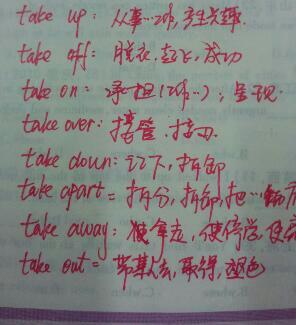 take up: 从事…工作, 产生兴趣.
take off: 脱衣. 起飞. 成功
take on: 承担(工作…); 呈现.
take over: 接管. 接口
take down: 记下, 拆卸
take apart = 拆分, 拆卸, 把…
take away: 使拿走, 使停学, 使
take out = 带某人去, 取得, 褪色